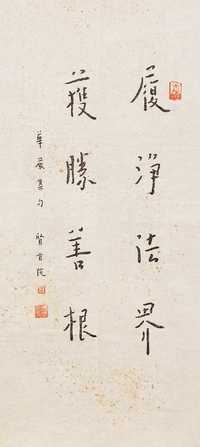 履淨法界
獲勝善根
華嚴集句
賢首院